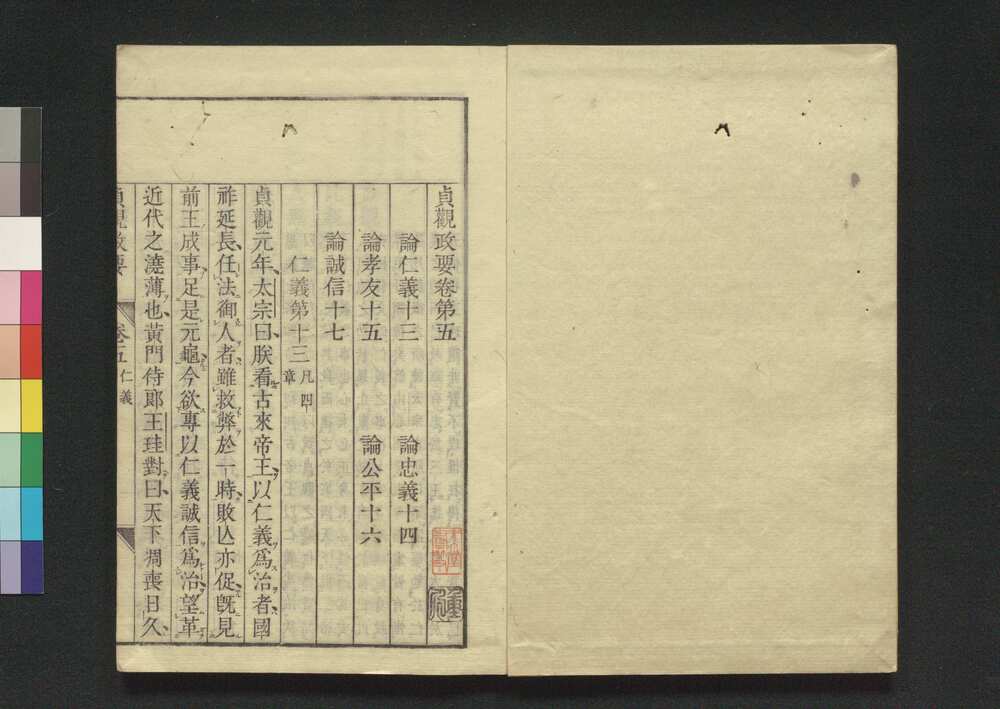 貞觀政要卷第五
論仁義十三 論忠義十四
論孝友十五 論公平十六
論誠信十七
仁義第十三 凡四章
貞觀元年太宗曰朕看古來帝王以仁義爲治者國
祚延長任法御人者雖救弊於一時敗亾亦促旣見
前王成事足是元龜今欲專以仁義誠信爲治望革
近代之澆薄也黃門侍郎王珪對曰天下凋喪日久
貞觀政要 卷五 仁義